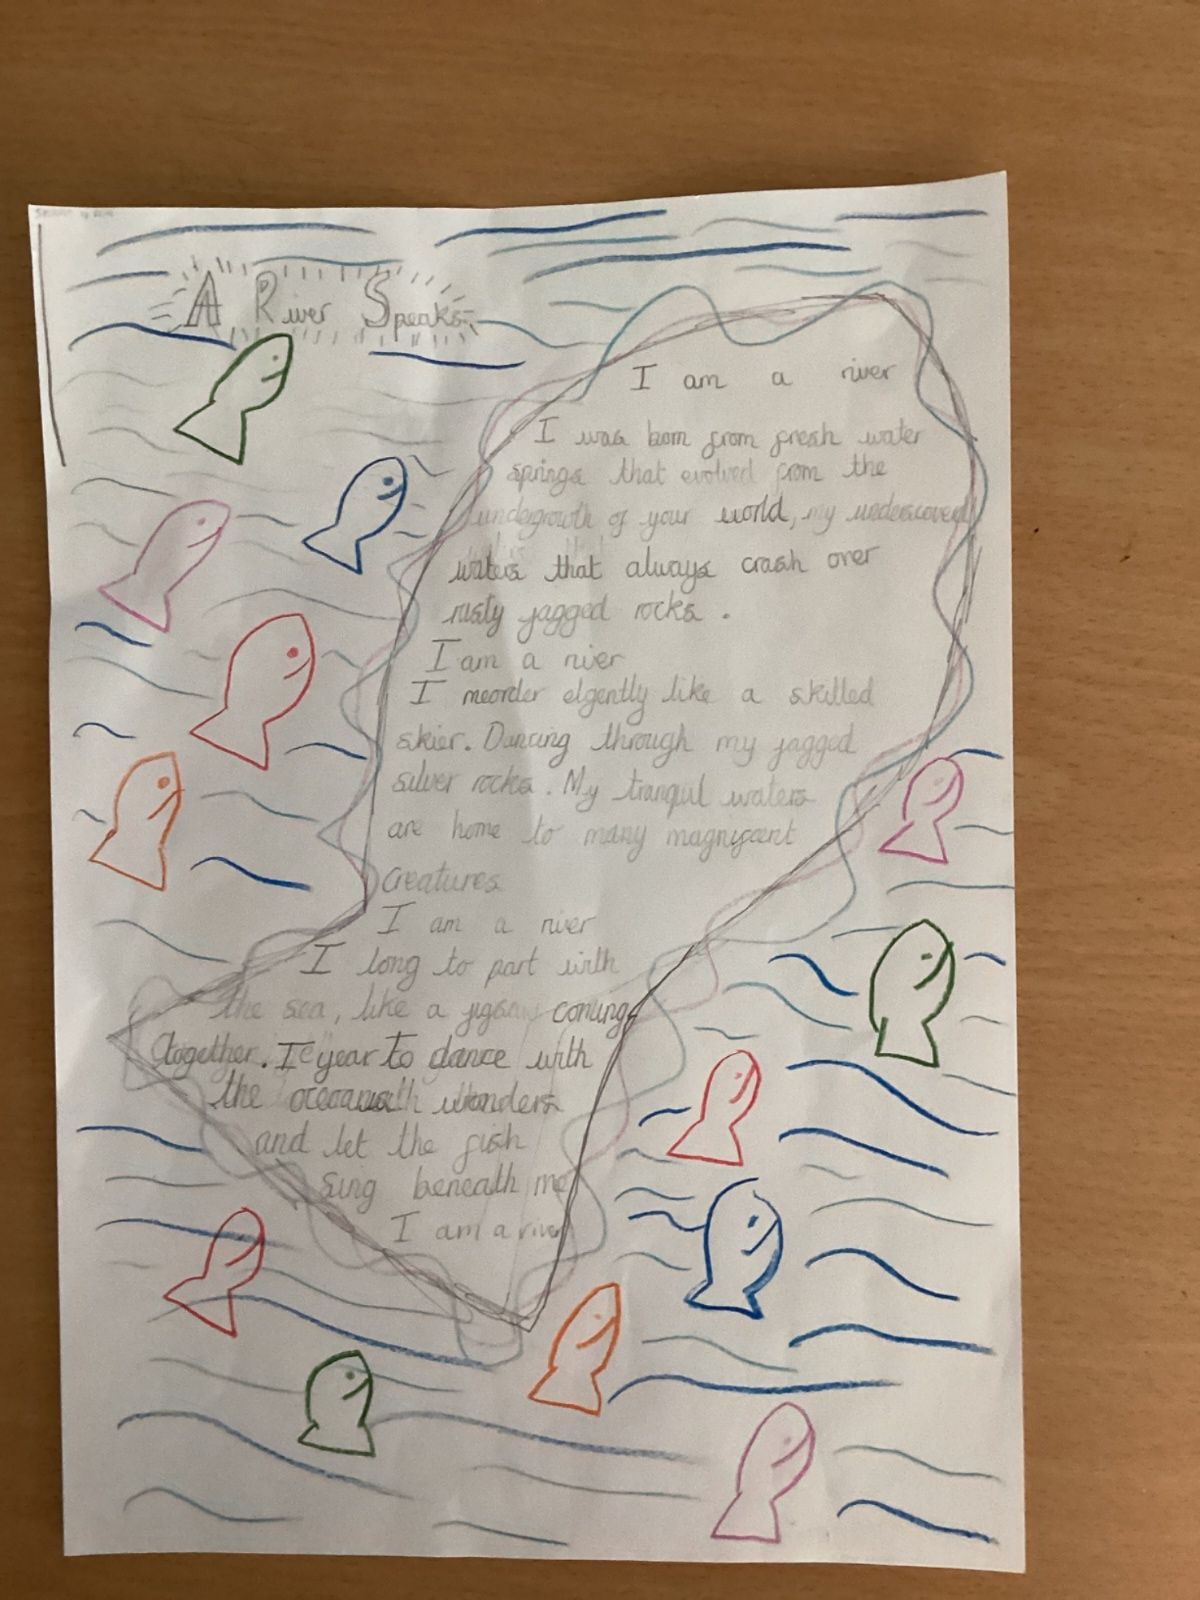 A River Speaks
I am a river
I was born from fresh water
springs that evolved from the
undergrowth of your world, my undiscovered
waters that always crash over
rusty jagged rocks.
I am a river
I meorder elgently like a skilled
skier. Dancing through my jagged
silver rocks. My tranquil waters
are home to many magnificent
creatures
I am a river
I long to part with
the sea, like a jigsaw coming
together. I year to dance with
the wonders
and let the fish
Sing beneath me
I am a river